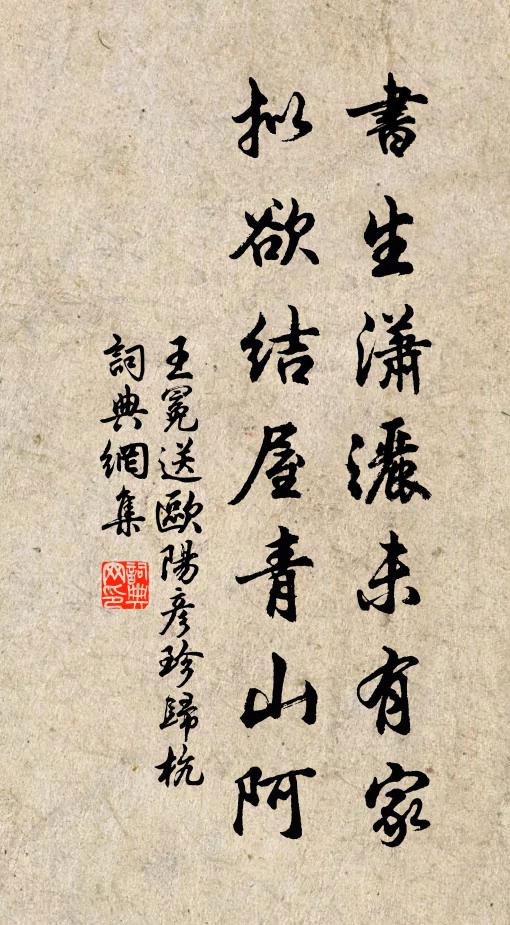 書生瀟灑未有家
拟欲結屋青山阿
王冕送歐陽彦珍歸杭
詞典網集
詞典网印